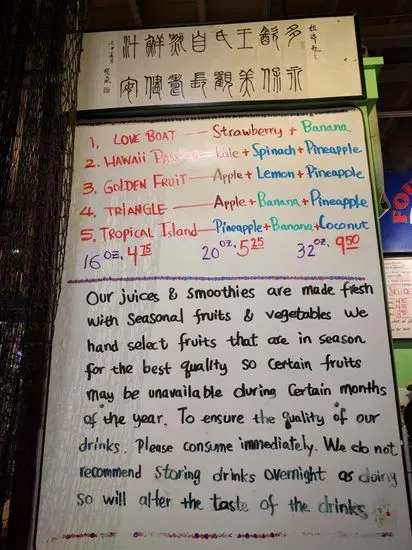 多飲王氏自然鮮汁
永保美觀長春健安
1. LOVE BOAT — Strawberry + Banana
2. HAWAII Passion — Kale + Spinach + Pineapple
3. GOLDEN FRUIT — Apple + Lemon + Pineapple
4. TRIANGLE — Apple + Banana + Pineapple
5. TROPICAL Island — Pineapple + Banana + Coconut
16 OZ. 4.75 20 OZ. 5.25 32 OZ. 9.50
Our juices & smoothies are made fresh
with seasonal fruits & vegetables We
hand select fruits that are in season
for the best quality so certain fruits
may be unavailable during certain months
of the year. To ensure the quality of our
drinks. Please consume immediately. We do not
recommend storing drinks overnight as doing
so will alter the taste of the drinks